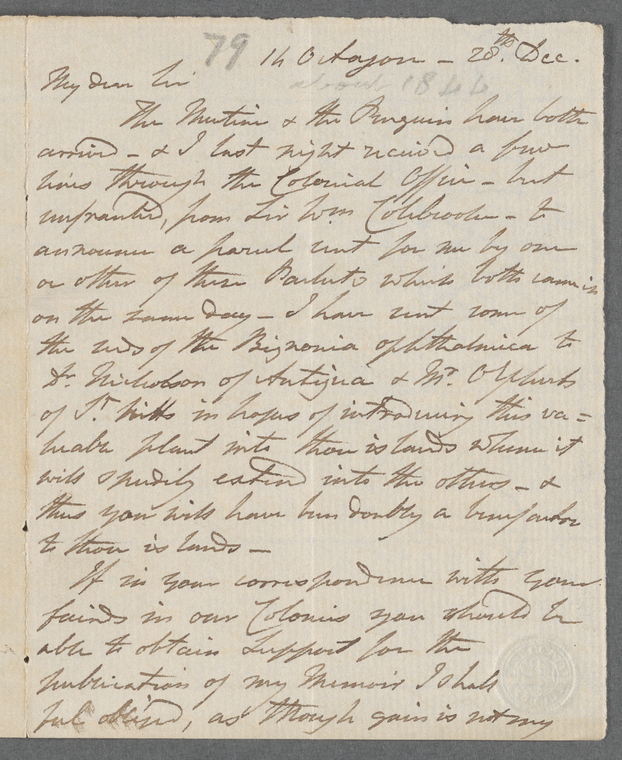 79
14 Octagon - 28th. Dec.
about 1844
My dear Sir
The Mutine & the Penguin have both
arrived - & I last night received a few
lines through the Colonial Office - but
unfranked, from Sir Wm Colebrooke - to
announce a parcel sent for me by one
or other of these Packets which both came in
on the same day - I have sent some of
the seeds of the Bignonia ophthalmica to
Dr. Nicholson of Antigua & Mr.
of St. Kitts in hopes of introducing this va=
luable plant into those islands whence it
will speedily extend into the others - &
thus you will have been doubly a benefactor
to those islands -
If in your correspondence with your
friends in our Colonies you should be
able to obtain support for the
publication of my Memoir I shall
feel obliged, as though gain is not my